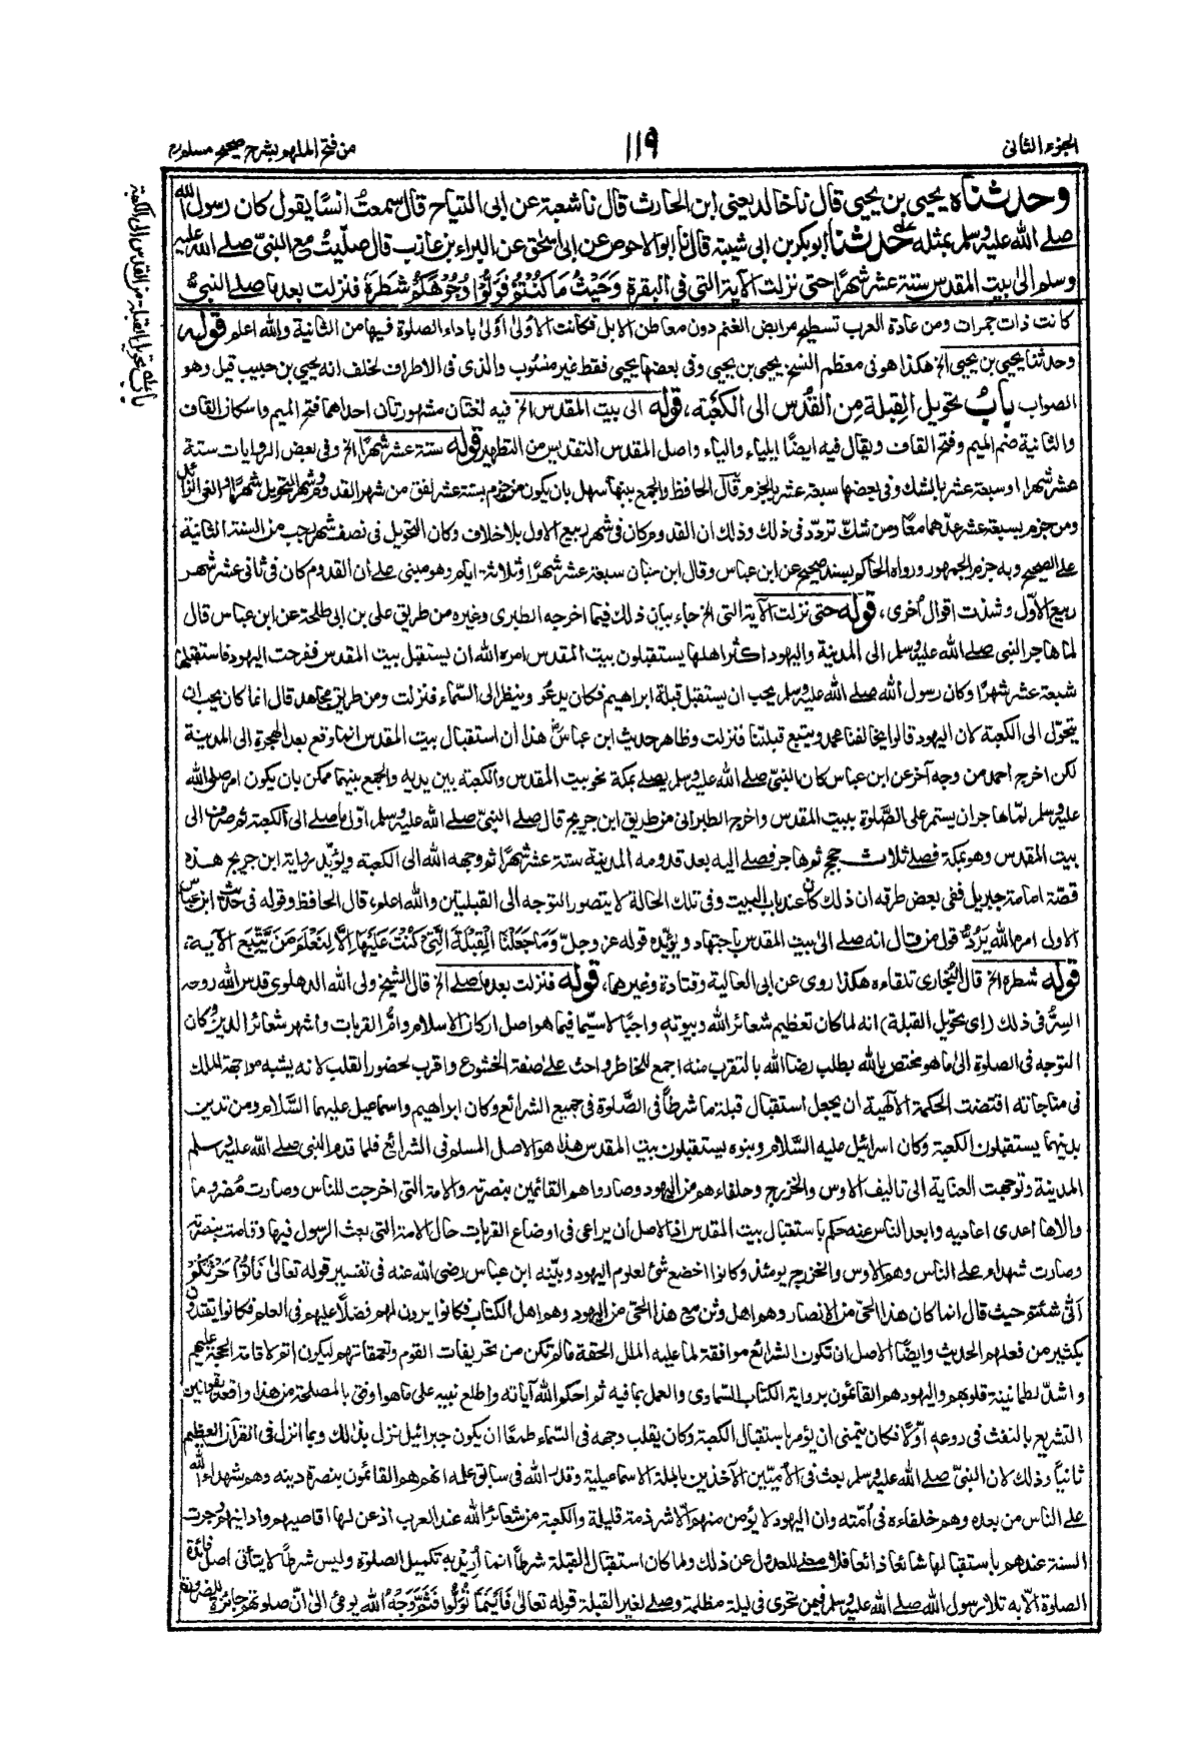 الجزء الثانى
١١٩
من فتح الملهم بشرح صحيح مسلم
باب تحويل القبلة من القدس الى الكعبة
وحدثناه يحيى بن يحيى قال نا خالد يعنى ابن الحارث قال نا شعبة عن ابى التياح قال سمعت انسًا يقول كان رسول الله
صلے الله عليه وسلم بمثله حدثنا ابو بكر بن ابى شيبة قال نا ابو الاحوص عن ابى اسحٰق عن البراء بن عازب قال صلّيتُ مع النبىّ صلے الله عليه
وسلم الىٰ بيت المقدس ستة عشر شهرًا حتى نزلت الآية التى فى البقرة وَحَيْثُ مَا كُنْتُمْ فَوَلُّوْا وُجُوْهَكُمْ شَطْرَهٗ فنزلت بعد ما صلى النبىّ
كانت ذات جمرات ومن عادة العرب تسطيح مرابض الغنم دون معاطن الابل فكانت الاولىٰ اولىٰ باداء الصلوة فيها من الثانية والله اعلم قوله
وحدثنا يحيى بن يحيى الخ هكذا هو فى معظم النسخ يحيى بن يحيى وفى بعضها يحيى فقط غير منسوب والذى فى الاطراف لخلف انه يحيى بن حبيب قيل وهو
الصواب بابُ تحويل القِبلة مِن القُدْس الى الكعْبة، قوله الى بيت المقدس الخ فيه لغتان مشهورتان احداهما فتح الميم واسكان القاف
والثانية ضم الميم وفتح القاف ويقال فيه ايضًا ايلياء والياء واصل المقدس التقديس من التطهير قوله ستة عشر شهرًا الخ وفى بعض الروايات ستة
عشر شهرا او سبعة عشر بالشك وفى بعضها سبعة عشر بالجزم قال الحافظ والجمع بينها سهل بان يكون من جزم بستة عشر لفق من شهر القدوم وشهر التحويل شهرًا والغى الزائد
ومن جزم بسبعة عشر عدّهما معًا ومن شكّ تردّد فى ذلك وذلك ان القدوم كان فى شهر ربيع الاول بلا خلاف وكان التحويل فى نصف شهر رجب من السنة الثانية
على الصحيح وبه جزم الجمهور ورواه الحاكم بسند صحيح عن ابن عباس وقال ابن حبان سبعة عشر شهرًا وثلاثة ايام وهو مبنى على ان القدوم كان فى ثانى عشر شهر
ربيع الاوّل وشذت اقوال اُخرى، قوله حتى نزلت الآية التى الخ جاء بيان ذلك فيما اخرجه الطبرى وغيره من طريق على بن ابى طلحة عن ابن عباس قال
لما هاجر النبى صلے الله عليه وسلم الى المدينة واليهود اكثر اهلها يستقبلون بيت المقدس امره الله ان يستقبل بيت المقدس ففرحت اليهود فاستقبلها
سبعة عشر شهرًا وكان رسول الله صلے الله عليه وسلم يحب ان يستقبل قبلة ابراهيم فكان يدعو وينظر الى السّماء فنزلت ومن طريق مجاهد قال انما كان يحب ان
يتحوّل الى الكعبة لان اليهود قالوا يخالفنا محمد ويتبع قبلتنا فنزلت وظاهر حديث ابن عباس هذا ان استقبال بيت المقدس انما وقع بعد الهجرة الى المدينة
لكن اخرج احمد من وجه آخر عن ابن عباس كان النبىّ صلے الله عليه وسلم يصلى بمكة نحو بيت المقدس والكعبة بين يديه والجمع بينهما ممكن بان يكون امر صلى الله
عليه وسلم لمّا هاجر ان يستمر على الصَّلوة ببيت المقدس واخرج الطبرانى من طريق ابن جريج قال صلے النبىّ صلے الله عليه وسلم اوّل ما صلے الى الكعبة ثم صرف الى
بيت المقدس وهو بمكة فصلے ثلاث حجج ثم هاجر فصلے اليه بعد قدومه المدينة ستة عشر شهرًا ثم وجهه الله الى الكعبة ويؤيّد رواية ابن جريج هذه
قصّة امامة جبريل ففى بعض طرقه ان ذلك كان عند باب البيت وفى تلك الحالة لا يتصور التوجه الى القبلتين والله اعلم، قال الحافظ وقوله فى حديث ابن عباس
الاول امره الله يَرُدُّ قول من قال انه صلے الىٰ بيت المقدس باجتهاد ويؤيّده قوله عز وجلّ وَمَا جَعَلْنَا الْقِبْلَةَ الَّتِىْ كُنْتَ عَلَيْهَا اِلَّا لِنَعْلَمَ مَنْ يَّتَّبِعُ الآية،
قوله شطره الخ قال البخارى تلقاءه هكذا روى عن ابى العالية وقتادة وغيرهما، قوله فنزلت بعد ما صلے الخ قال الشيخ ولى الله الدهلوى قدس الله روحه
السِرُّ فى ذلك (اى تحويل القبلة) انه لما كان تعظيم شعائر الله وبيوته واجبًا لا سيّما فيما هو اصل اركان الاسلام وامّ القربات واشهر شعائر الدين وكان
التوجه فى الصلوة الى ما هو مختص بالله بطلب رضا الله بالتقرب منه اجمع للخاطر واحث على صفة الخشوع واقرب لحضور القلب لانه يشبه مواجهة الملك
فى مناجاته اقتضت الحكمة الآلهية ان يجعل استقبال قبلة ما شرطًا فى الصَّلوة فى جميع الشرائع وكان ابراهيم واسماعيل عليهما السَّلام ومن تدين
بدينهما يستقبلون الكعبة وكان اسرائيل عليه السَّلام وبنوه يستقبلون بيت المقدس هذا هو الاصل المسلم فى الشرائع فلما قدم النبى صلے الله عليه وسلم
المدينة وتوجهت العناية الى تاليف الاوس والخزرج وحلفاءهم من اليهود وصاروا هم القائمين بنصرته والامة التى اخرجت للناس وصارت مُضر وما
والاها اعدى اعاديه وابعد الناس عنه حكم باستقبال بيت المقدس اذ الاصل ان يراعى فى اوضاع القربات حال الامة التى بعث الرسول فيها وقامت بنصرته
وصارت شهداء على الناس وهم الاوس والخزرج يومئذ وكانوا اخضع شئ لعلوم اليهود وبيّنه ابن عباس رضى الله عنه فى تفسير قوله تعالىٰ فَاْتُوْا حَرْثَكُمْ
اَنّٰى شئتم حيث قال انما كان هذا الحىّ من الانصار وهم اهل وثن مع هذا الحىّ من اليهود وهم اهل الكتاب فكانوا يرون لهم فضلًا عليهم فى العلم فكانوا يقتدون
بكثير من فعلهم الحديث وايضًا الاصل ان تكون الشرائع موافقة لما عليه الملل الحقة ما لم تكن من تحريفات القوم وتعمقاتهم ليكون اتم لاقامة الحجة عليهم
واشدّ لطمانينة قلوبهم واليهود هم القائمون برواية الكتاب السّماوى والعمل بما فيه ثم احكم الله آياته واطلع نبيه على ما هو اوفق بالمصلحة من هذا واقعد بقوانين
التشريع بالنفث فى روعه اوّلًا فكان يتمنى ان يؤمر باستقبال الكعبة وكان يقلب وجهه فى السّماء طمعًا ان يكون جبرائيل نزل بذلك وبما انزل فى القرآن العظيم
ثانيًا وذلك لان النبىّ صلے الله عليه وسلم بعث فى الاُميّين الآخذين بالملة الاسماعيلية وقدر الله فى سابق علمه انهم هم القائمون بنصرة دينه وهم شهداء الله
على الناس من بعده وهم خلفاءه فى اُمّته وان اليهود لا يؤمن منهم الّا شرذمة قليلة والكعبة من شعائر الله عند العرب اذعن لها اقاصيهم واداينهم وجرت
السنة عندهم باستقبالها شائعًا ذائعًا فلا معنى للعدول عن ذلك ولما كان استقبال القبلة شرطًا انما اريد به تكميل الصلوة وليس شرطًا لا يتأتى اصل فائدة
الصلوة الّا به تلا رسول الله صلے الله عليه وسلم فيمن تحرى فى ليلة مظلمة وصلے لغير القبلة قوله تعالىٰ فَاَيْنَمَا تُوَلُّوْا فَثَمَّ وَجْهُ الله يومئ الىٰ انّ صلوتهم جائزة للضرورة